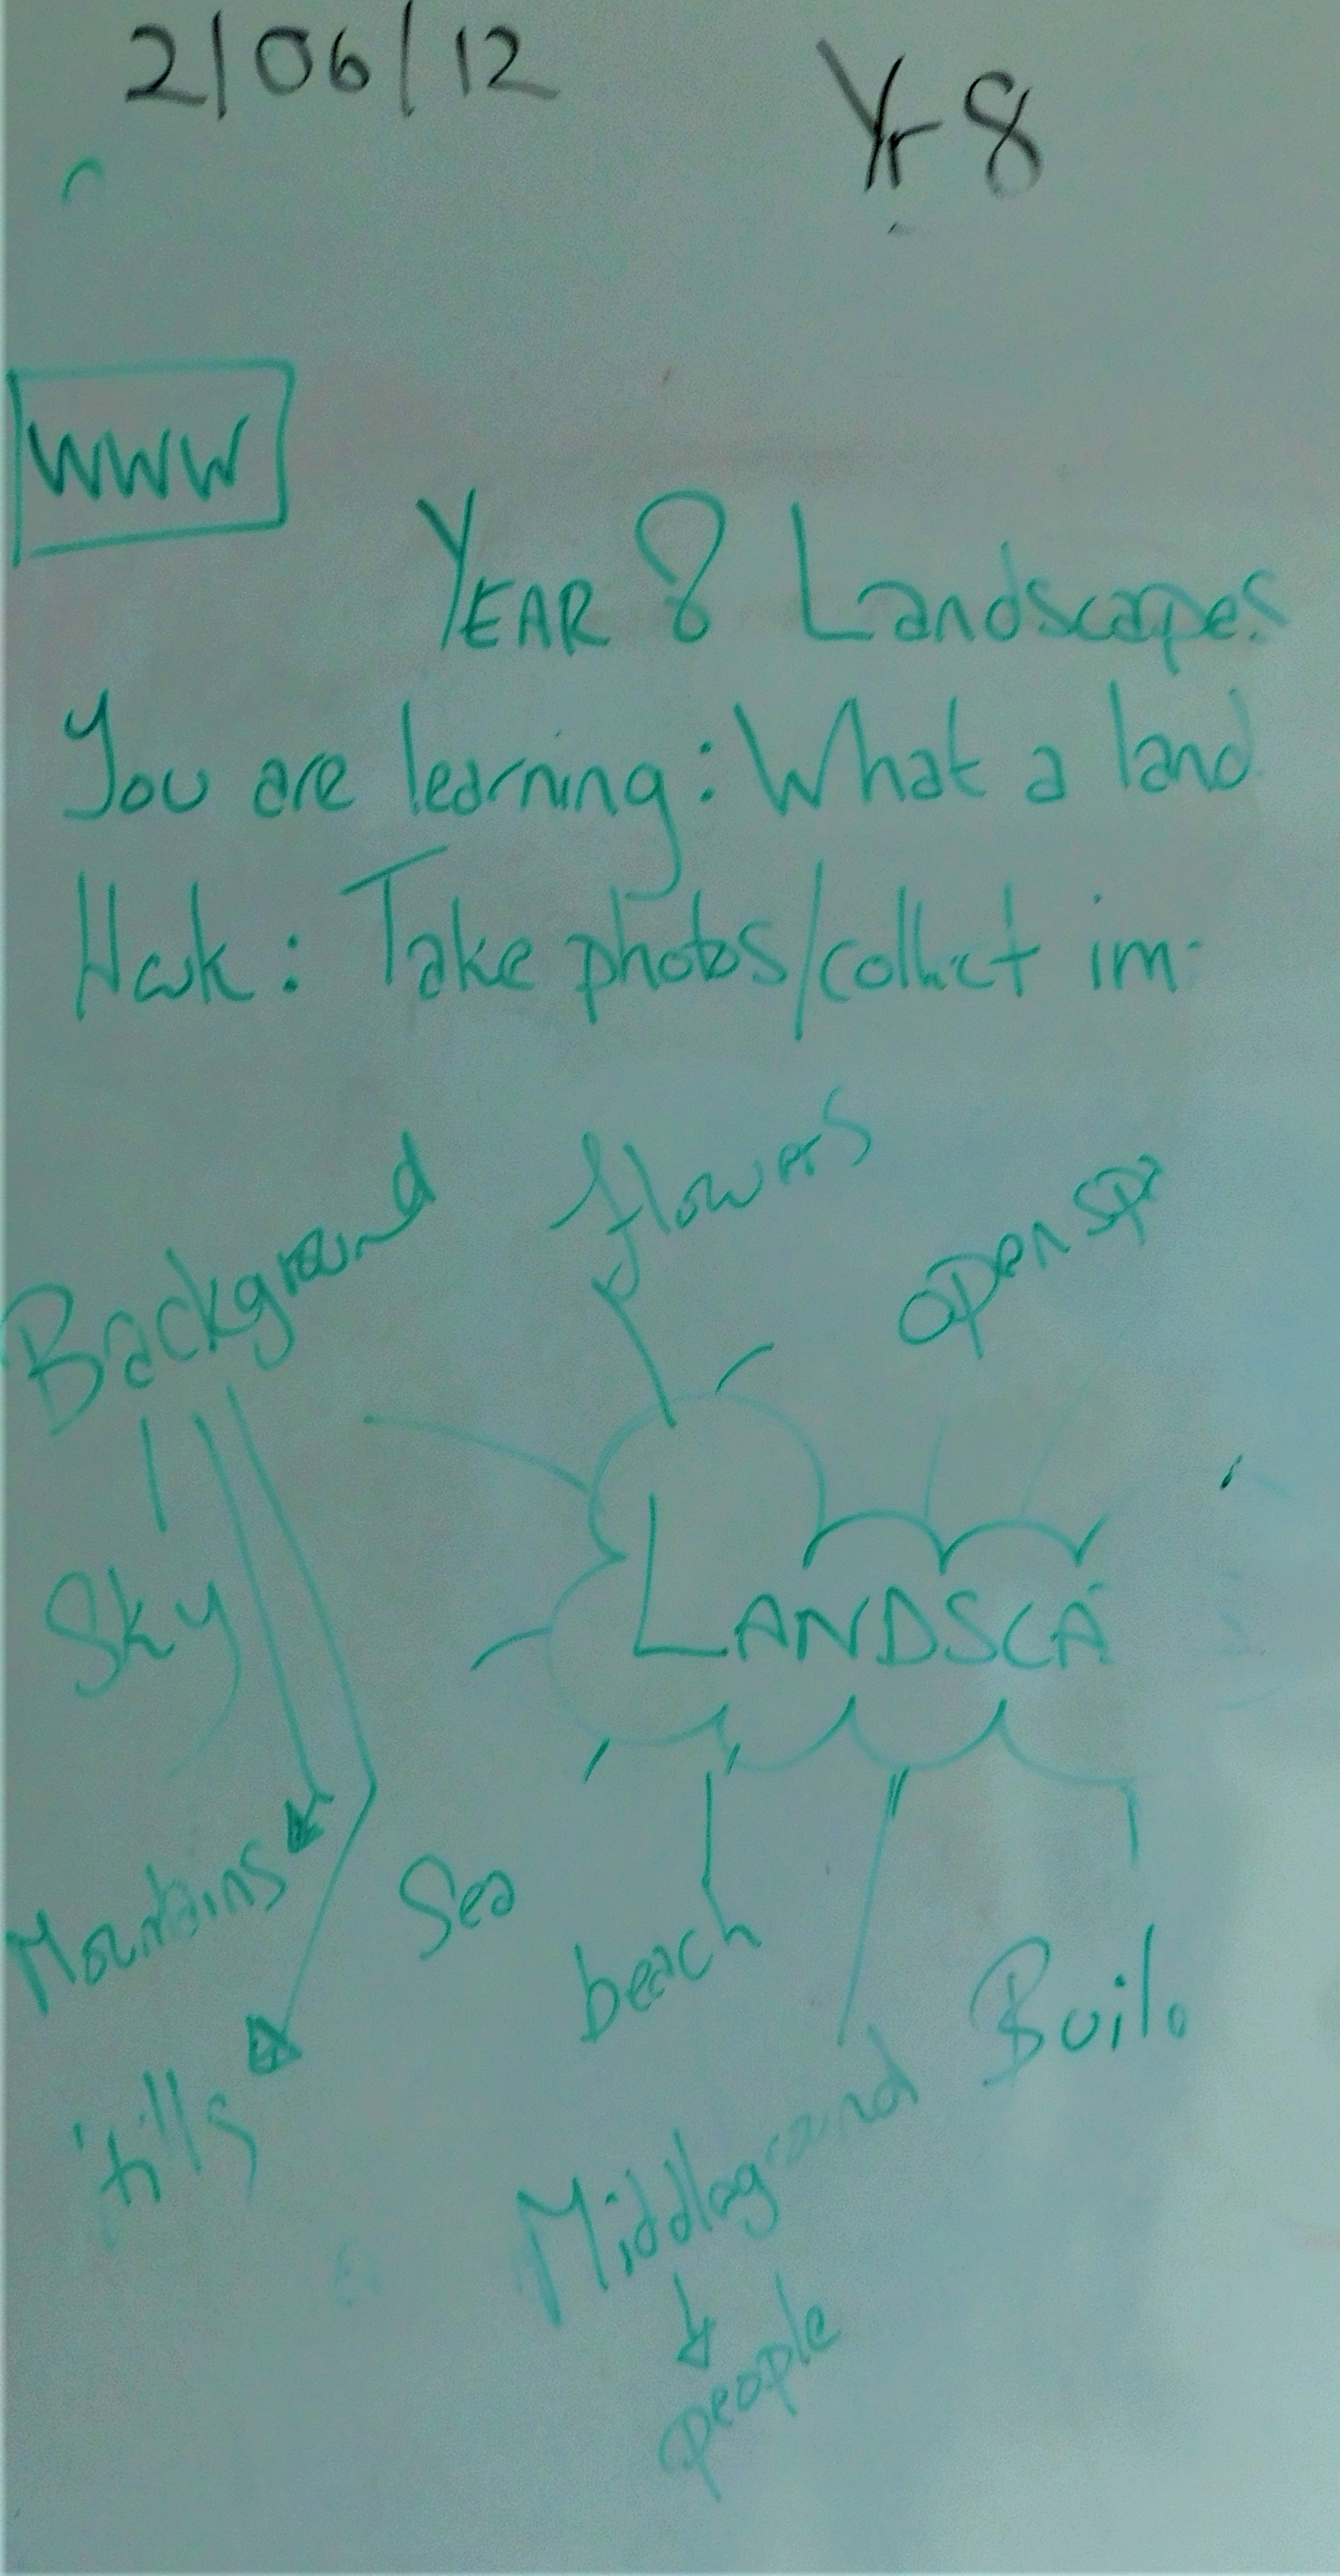 2/06/12
Yr 8
WWW
YEAR 8 Landscapes
You are learning: What a land
Hwk: Take photos/collect im
flowers
Background
open sp
Sky
LANDSCA
Mountains
Sea
beach
Buil
Hills
Middleground
people